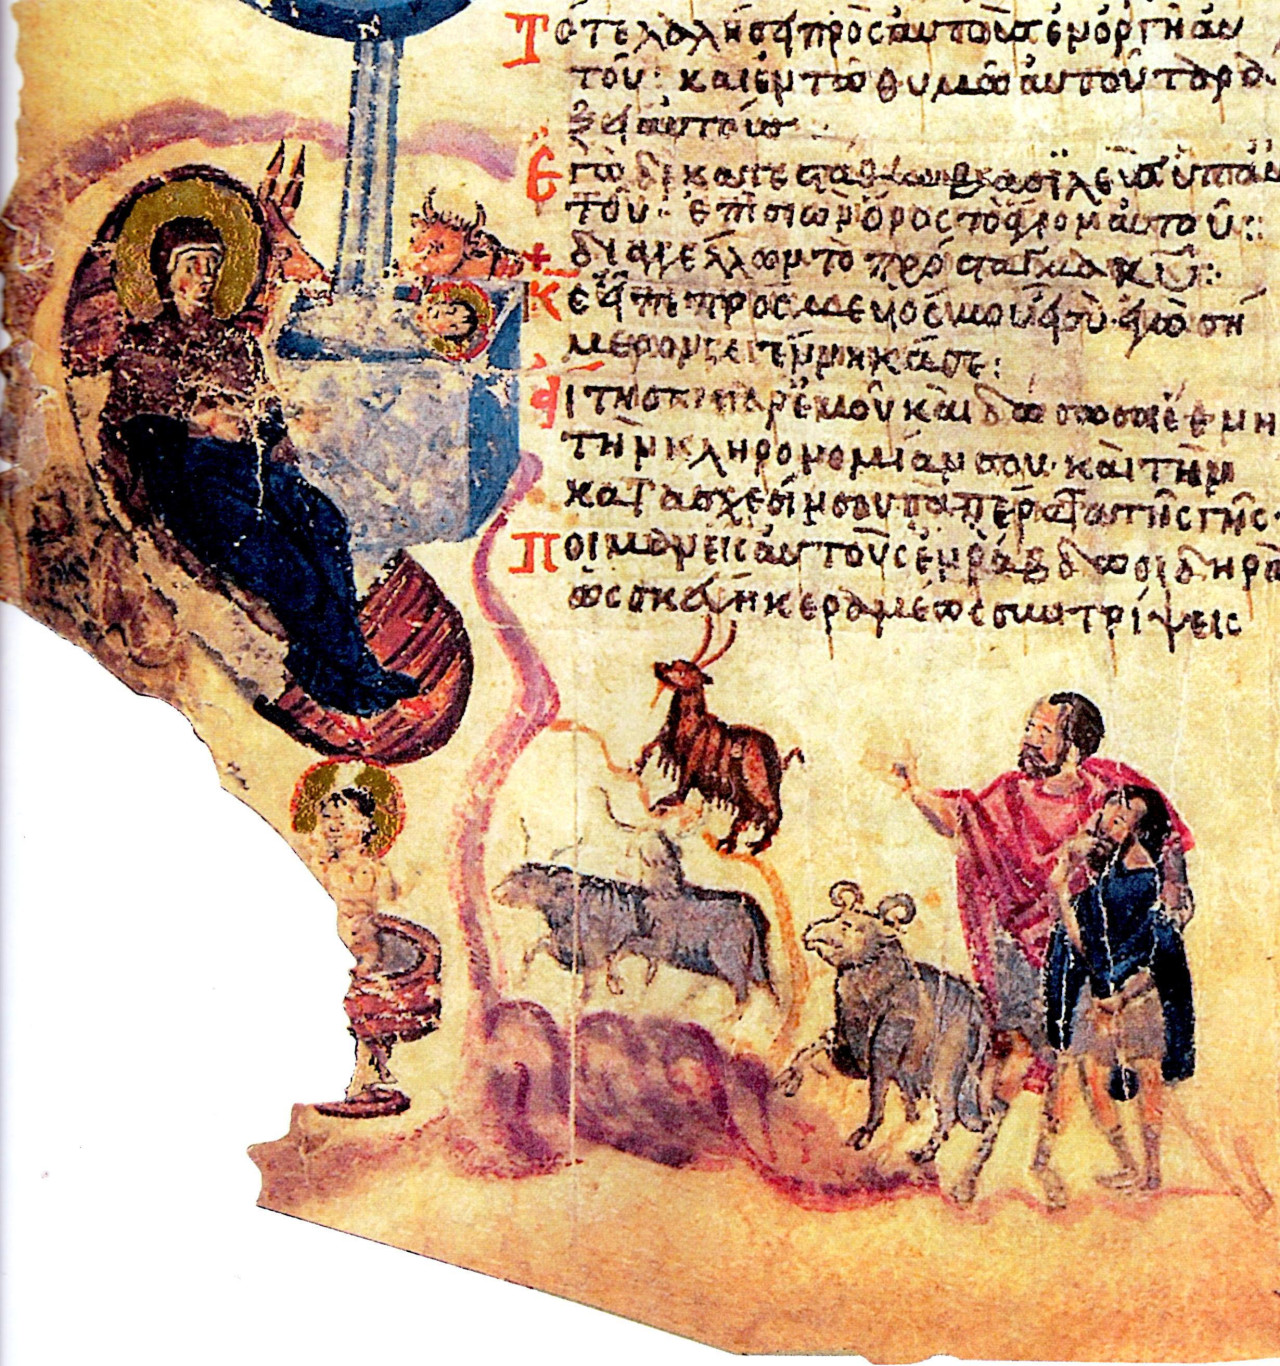 Τότε λαλήσει πρὸς αὐτοὺς ἐν ὀργῆ αὐ
τοῦ· καὶ ἐν τῶ θυμῶ αὐτοῦ ταρά
ξει αὐτούς·
Ἐγὼ δὲ κατεστάθην βασιλεὺς ὑπ' αὐ
τοῦ· ἐπὶ σιὼν ὄρος τὸ ἅγιον αὐτοῦ:
+ διαγγέλλων τὸ πρόσταγμα κυ:
Κε εἶπε πρός με υἱός μου εἶ σὺ· ἐγὼ σή
μερον γεγέννηκά σε:
αἴτησαι παρ' ἐμοῦ καὶ δώσω σοι ἔθνη
τὴν κληρονομίαν σου· καὶ τὴν
κατάσχεσίν σου τὰ πέρατα τῆς γῆς·
Ποιμανεῖς αὐτοὺς ἐν ράβδω σιδηρᾶ
ὡς σκεύη κεραμέως συντρίψεις